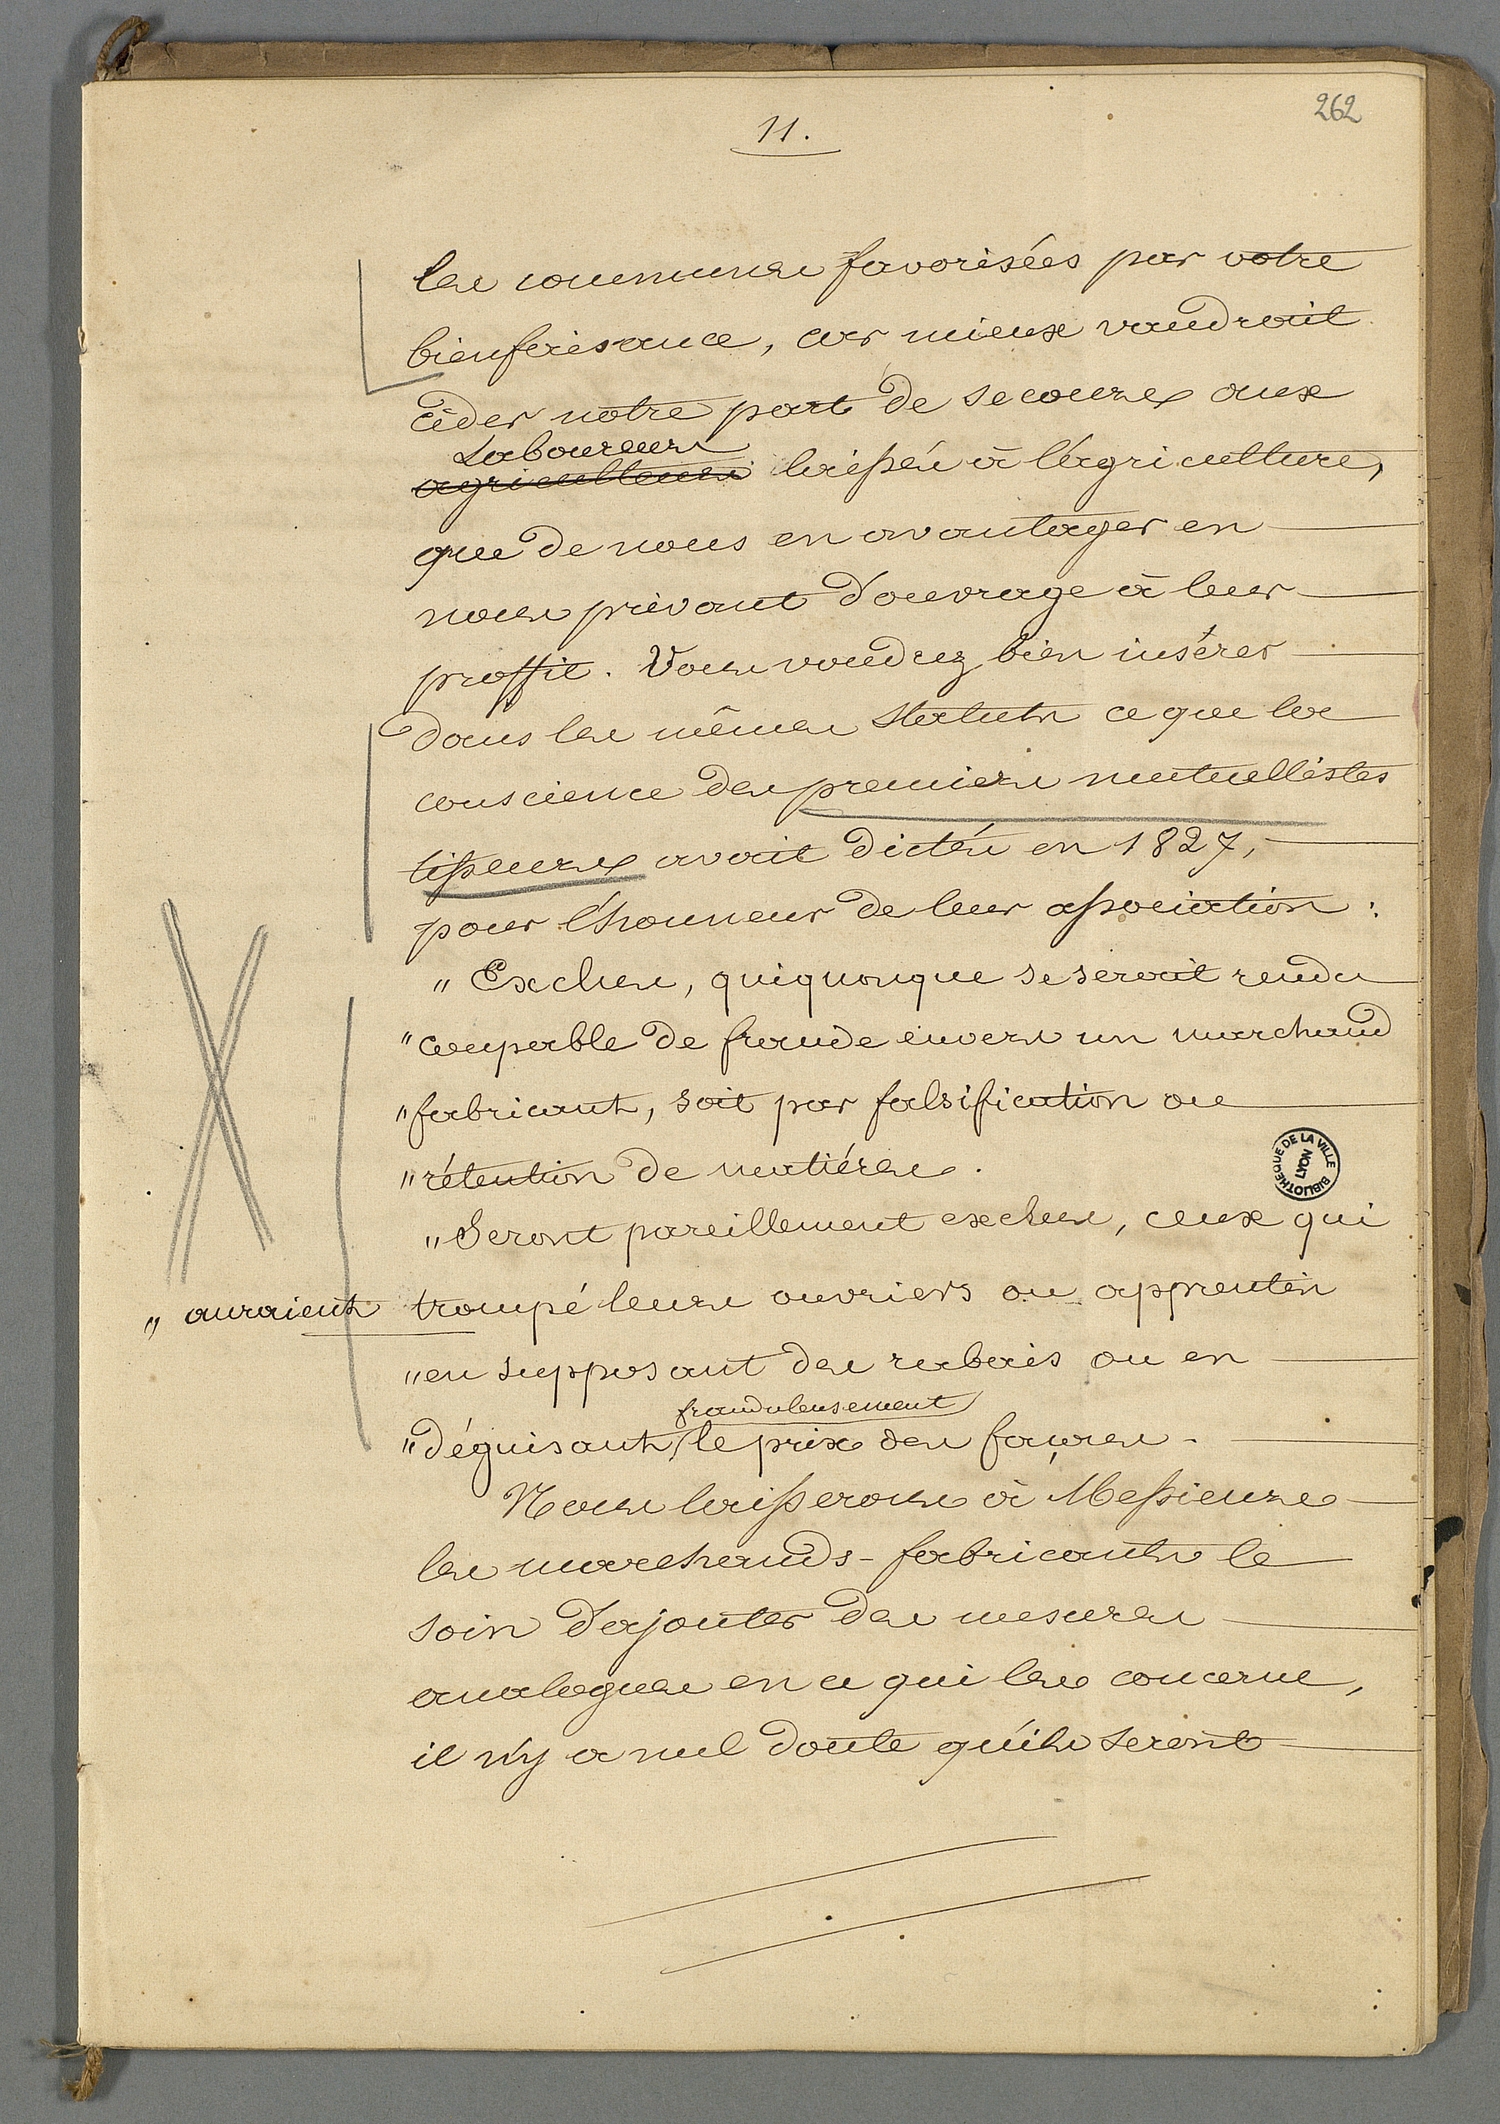 262
11.
les communes favorisées par votre
bienfaisance, car mieux vaudrait
céder notre part de secours aux
Laboureurs
agriculteurs laissés à l'agriculture,
que de nous en avantager en
nous privant d'ouvrage à leur
proffit. Vous voudrez bien insérer
dans les mêmes statuts ce que la
conscience des premiers mutuellistes
tisseurs avait dictés en 1827,
pour l'honneur de leur association :
„ Exclus, quiquonque se serait rendu
„ coupable de fraude envers un marchand
„ fabricant, soit par falsification ou
„ rétention de matières.
„ Seront pareillement exclus, ceux qui
„ auraient trompé leurs ouvriers ou apprentis
„ en supposant des rabais ou en
frauduleusement
„ déguisant le prix des façons.
Nous laisserons à Messieurs
les marchands-fabricants le
soin d'ajouter des mesures
analogues en ce qui les concerne,
il n'y a nul doute qu'ils seront
BIBLIOTHEQUE DE LA VILLE
LYON